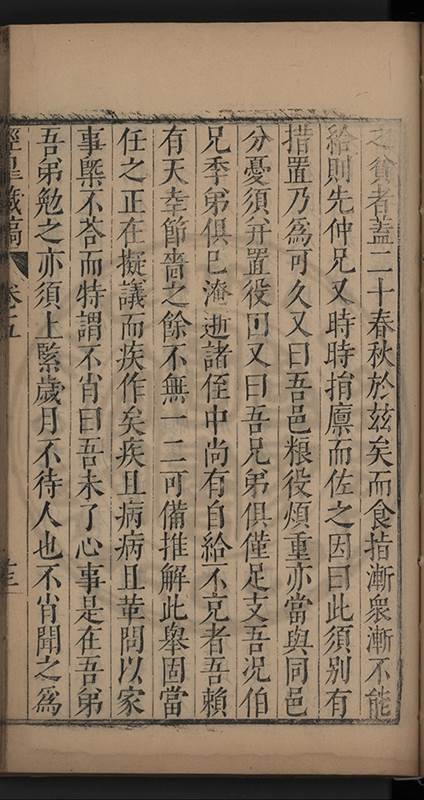 之貧者蓋二十春秋於玆矣而食指漸衆漸不能
給則先仲兄又時時捐廩而佐之因曰此須别有
措置乃爲可久又曰吾邑粮役煩重亦當與同邑
分憂須并置役田又曰吾兄弟俱僅足支吾况伯
兄季弟俱已淹逝諸侄中尚有自給不克者吾賴
有天幸節嗇之餘不無一二可備推解此舉固當
任之正在擬議而疾作矣疾且病病且革問以家
事槩不荅而特謂不肖曰吾未了心事是在吾弟
吾弟勉之亦須上緊歲月不待人也不肖聞之爲
涇臯藏稿
卷十五
十三